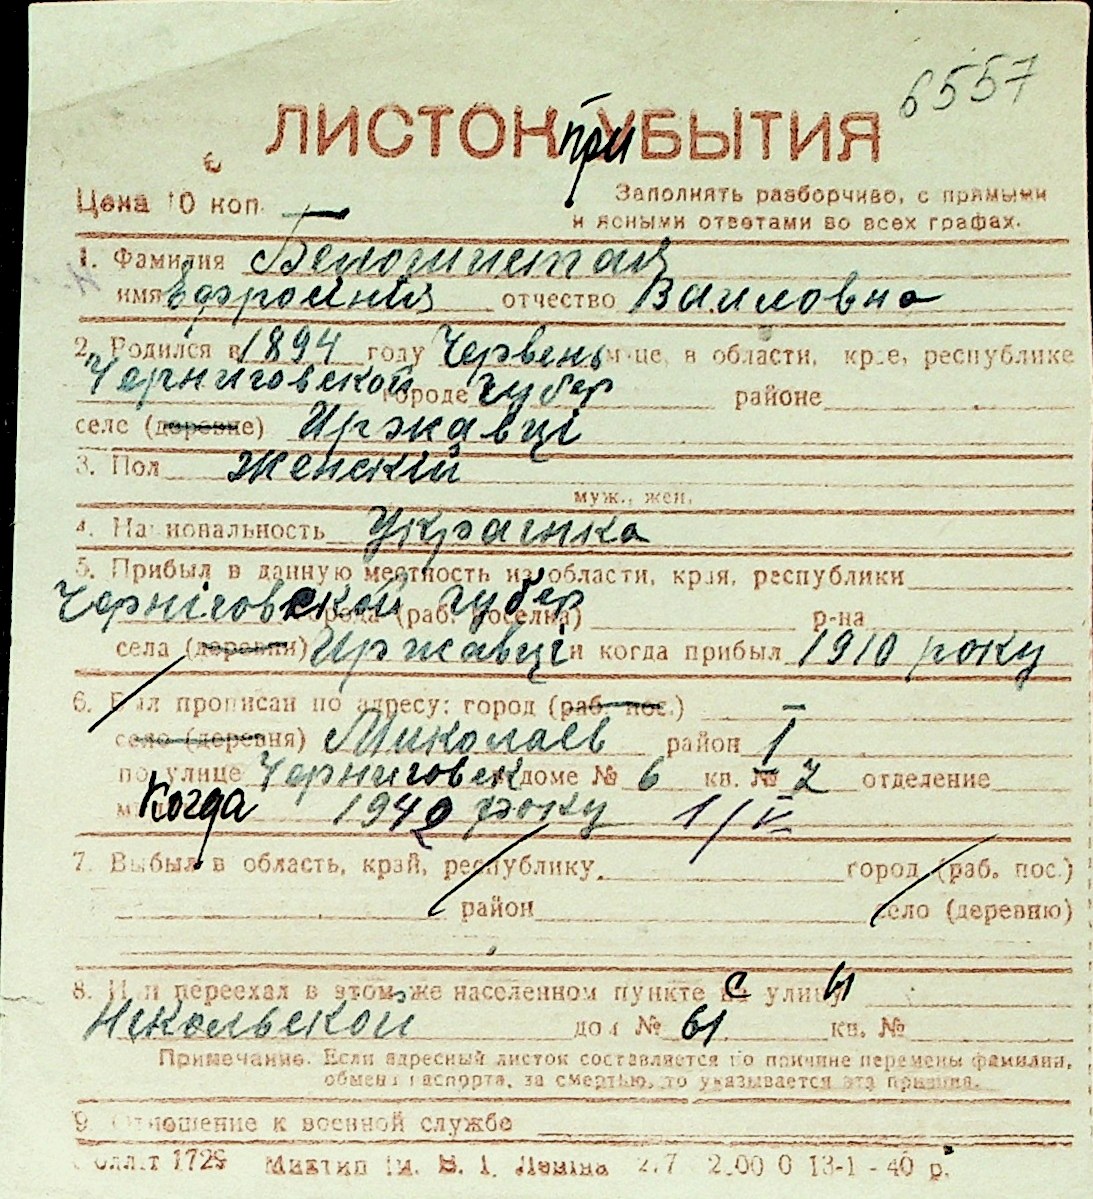 6557
ЛИСТОК при УБЫТИЯ
Цена 10 коп.
Заполнять разборчиво, с прямыми
и ясными ответами во всех графах.
1. Фамилия Белошистая
имя Ефросиния отчество Вавиловна
2. Родился в 1894 году Червень м-це, в области, крае, республике
Черниговской городе губер районе
селе (деревне) Иржавці
3. Пол женский
муж., жен.
4. Национальность Украинка
5. Прибыл в данную местность из области, края, республики
Чернiговской губер города (раб. поселка) р-на
села (деревни) Иржавці и когда прибыл 1910 року
6. Был прописан по адресу: город (раб. пос.)
село (деревня) Миколаев район I
по улице Черниговск доме № 6 кв. № 7 отделение
Когда 1942 року 1/V
7. Выбыл в область, край, республику город (раб. пос.)
район село (деревню)
8. Или переехал в этом же населенном пункте с улицы
Нікольской дом № 61 кв. №
Примечание. Если адресный листок составляется по причине перемены фамилии,
обмена паспорта, за смертью, то указывается эта причина.
9. Отношение к военной службе
1729 им. В. І. Леніна 13-1-40 р.